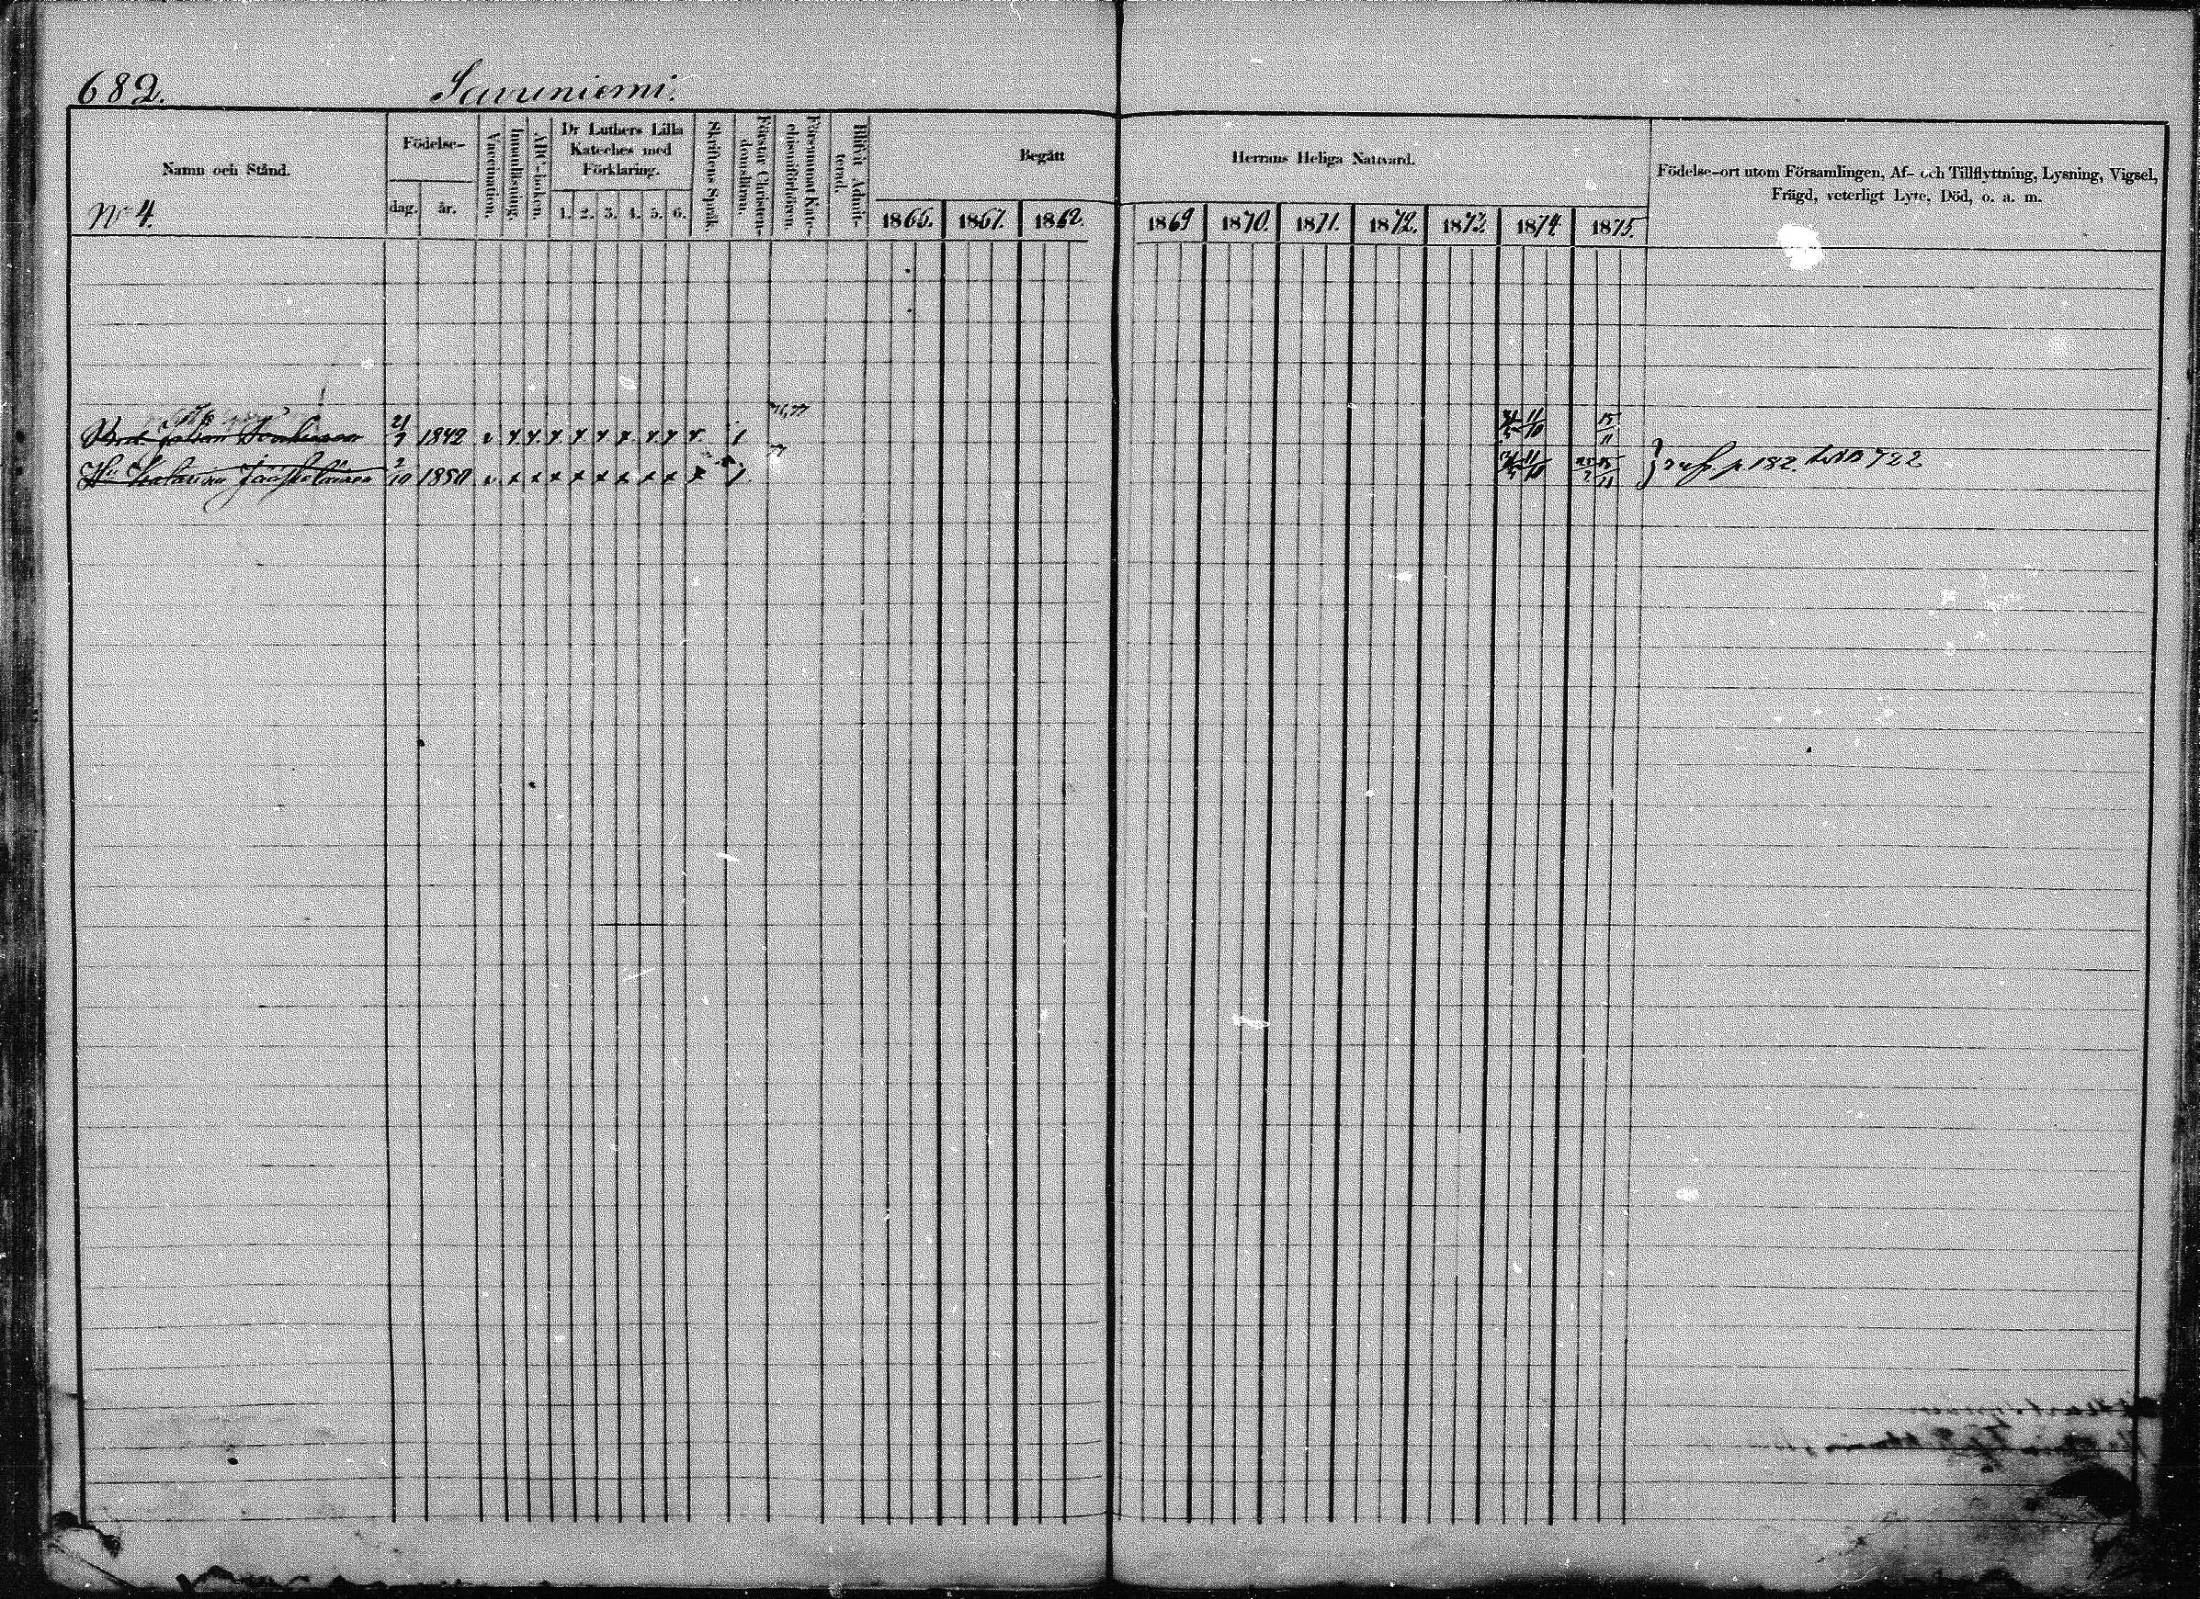 682. Savuniemi.
Namn och Stånd.
No 4.
Födelse-
dag. år.
Vaccination.
Innanläsning.
ABC-boken.
Dr Luthers Lilla
Kateches med
Förklaring.
1. 2. 3. 4. 5. 6.
Skriftens Språk.
Förstår Christen-
domsläran.
Försummat Kate-
chismiförhören.
Blifvit Admit-
terad.
Begått Herrans Heliga Nattvard.
1866. 1867. 1862. 1869 1870. 1871. 1872. 1873. 1874 1875.
Födelse-ort utom Församlingen, Af- och Tillflyttning, Lysning, Vigsel,
Frägd, veterligt Lyte, Död, o. a. m.
76,77
Johan 21/7 1842 v x x x x x x x x x 1 11/10 15/11
77
Hu Katarina Jääskeläinen 2/10 1850 v x x x x x x x x x 1 11/10 15/11 p 182. 722